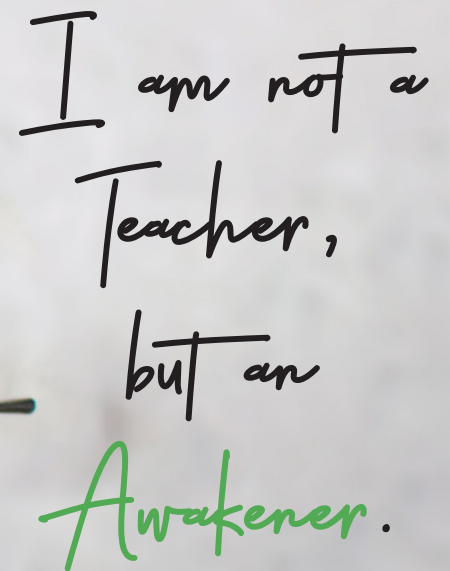 I am not a
Teacher,
but an
Awakener.